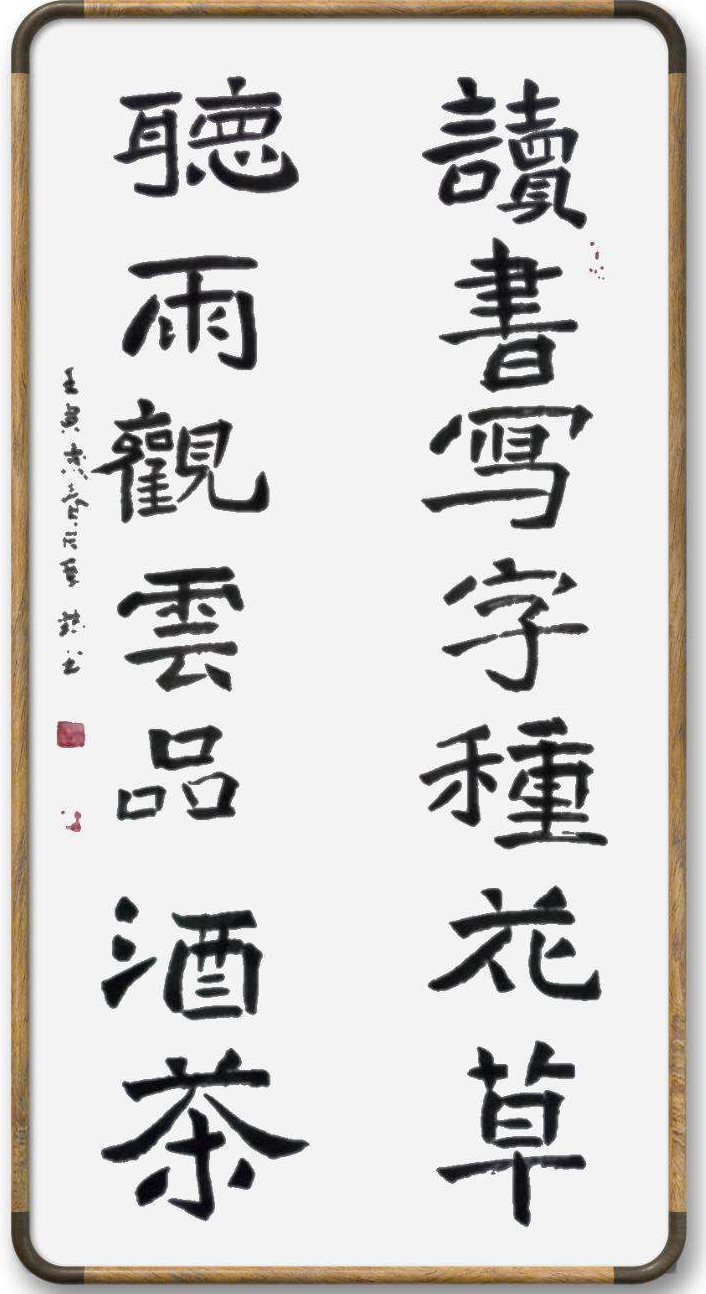 讀書寫字種花草
聽雨觀雲品酒茶
壬寅
書